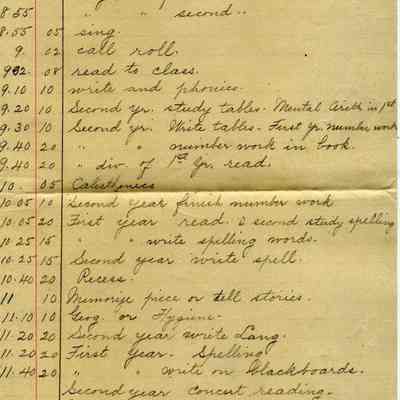 8.55 " " second ..
8.55 05 sing.
9. 02 call roll.
9.02. 08 read to class.
9.10 10 write and phonics.
9.20 10 Second yr. study tables. Mental Arith in 1st
9.30 10 Second yr. Write tables. First yr. number work
9.40 20 " " number work in book.
9.40 20 " div. of 1st yr. read.
10. 05 Calisthenics
10.05 10 Second year finish number work
10.05 20 First year read. & second study spelling
10.25 15 " " write spelling words.
10.25 15 Second year write spell.
10.40 20 Recess.
11 10 Memorize piece or tell stories.
11.10 10 Geog. or Hygiene.
11.20 20 Second year write Lang.
11.20 20 First year. Spelling
11.40 20 " " write on blackboards.
Second year concert reading.